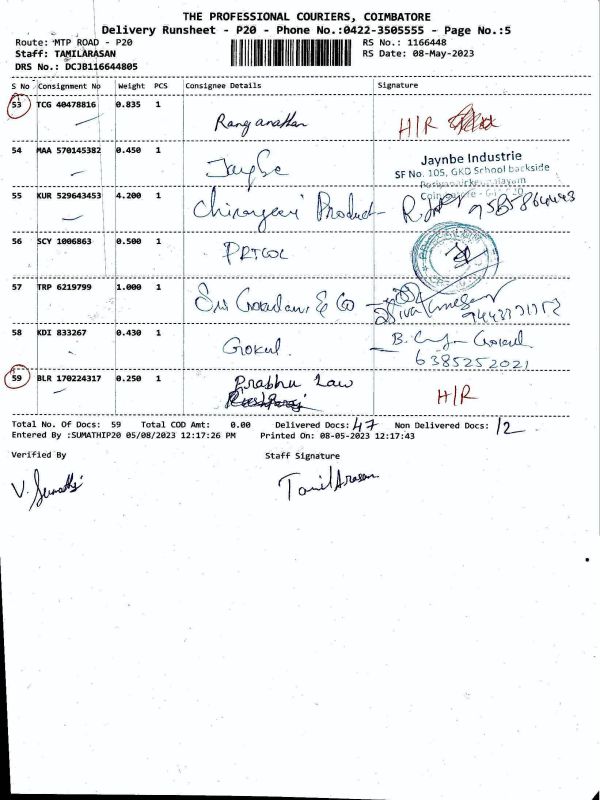 THE PROFESSIONAL COURIERS, COIMBATORE
Delivery Runsheet - P20 - Phone No.:0422-3505555 - Page No.:5
Route: MTP ROAD - P20 RS No.: 1166448
Staff: TAMILARASAN RS Date: 08-May-2023
DRS No.: DCJB116644805
S No Consignment No Weight PCS Consignee Details Signature
53 TCG 40478816 0.835 1 Ranganathan H/R
54 MAA 570145382 0.450 1 Jaynbe Jaynbe Industrie
SF No. 105, GKD School backside
55 KUR 529643453 4.200 1 Chiranjeevi Product
56 SCY 1006863 0.500 1 PRICOL
57 TRP 6219799 1.000 1 & Co
58 KDI 833267 0.430 1 Gokul. B. Gokul
6385252021
59 BLR 170224317 0.250 1 Prabhu Law H/R
Total No. Of Docs: 59 Total COD Amt: 0.00 Delivered Docs: 47 Non Delivered Docs: 12
Entered By :SUMATHIP20 05/08/2023 12:17:26 PM Printed On: 08-05-2023 12:17:43
Verified By Staff Signature
V. Sumathi TamilArasan